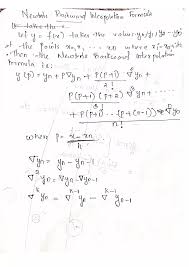 Newton's Backward Interpolation Formula
Let y = f(x) takes the value y₀, y₁, y₂ ... yₙ
at the points x₀, x₁, ... xₙ where
Then the Newton's Backward Interpolation
Formula is:
y(p) = yₙ + p∇yₙ + p(p+1)/2! ∇²yₙ +
p(p+1)(p+2)/3! ∇³yₙ + ...
+ p(p+1) ... (p+(n-1))/n! ∇ⁿyₙ
where p = x - xₙ/h
∇yₙ = yₙ - yₙ₋₁
∇²yₙ = ∇yₙ - ∇yₙ₋₁
∇ᵏyₙ = ∇ᵏ⁻¹yₙ - ∇ᵏ⁻¹yₙ₋₁